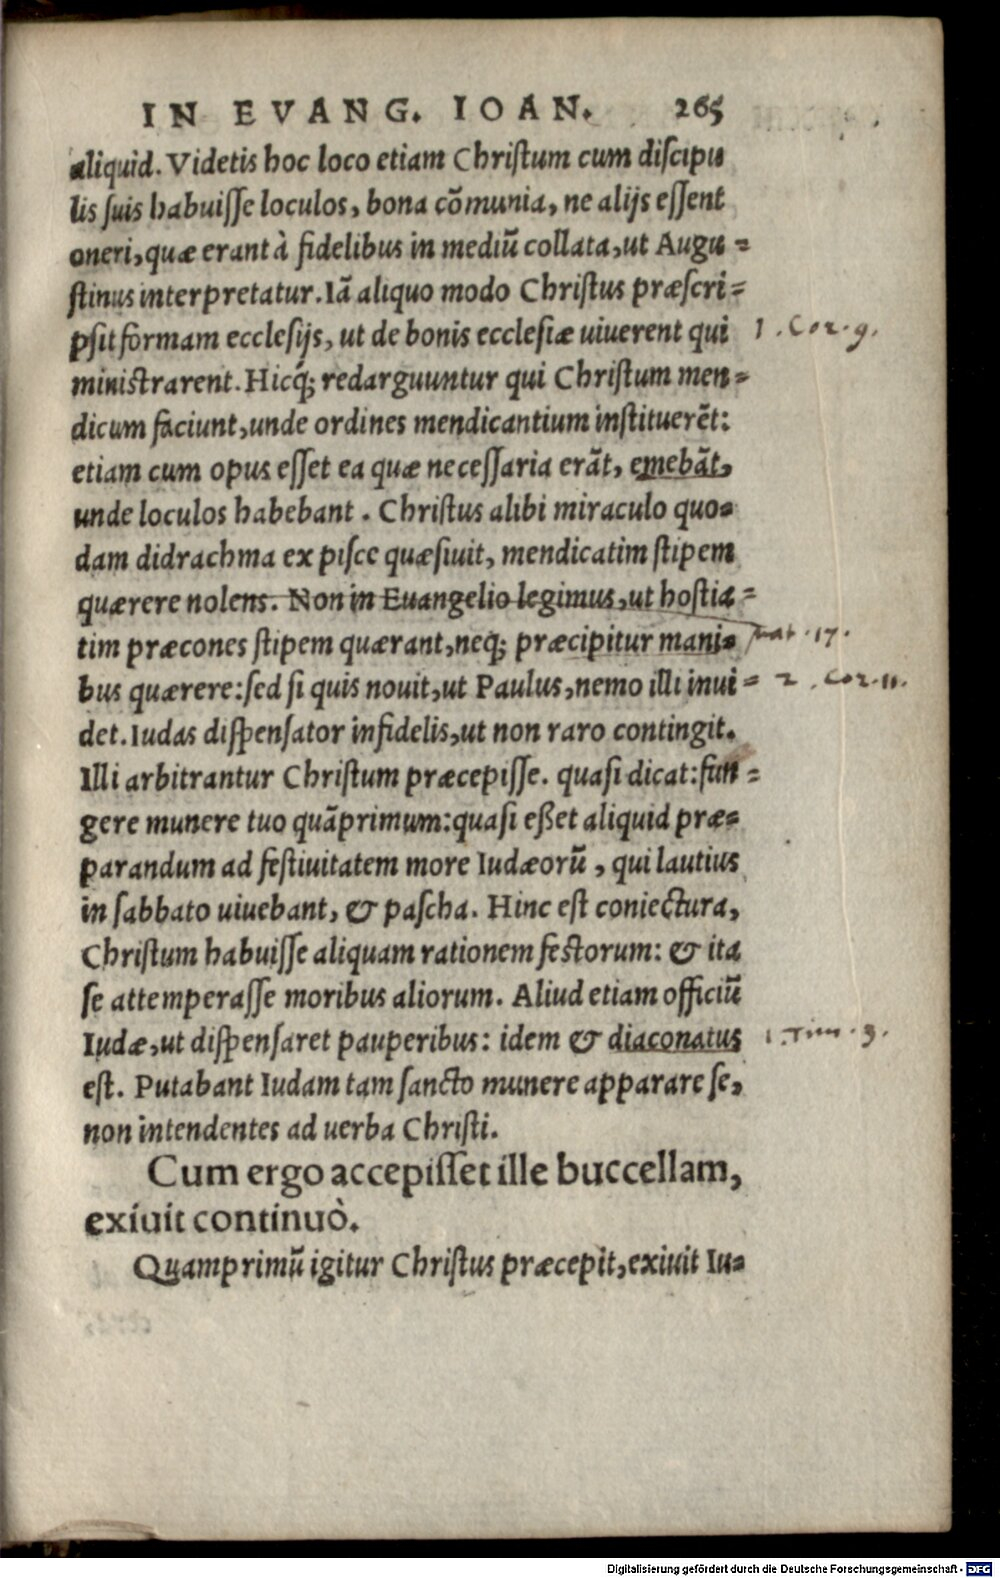 IN EVANG. IOAN. 265
aliquid. Videtis hoc loco etiam Christum cum discipu
lis suis habuisse loculos, bona cõmunia, ne alijs essent
oneri, quæ erant à fidelibus in mediũ collata, ut Augu=
stinus interpretatur. Iã aliquo modo Christus præscri=
psit formam ecclesijs, ut de bonis ecclesiæ uiuerent qui 1. Cor. 9.
ministrarent. Hicq́; redarguuntur qui Christum men=
dicum faciunt, unde ordines mendicantium instituerẽt:
etiam cum opus esset ea quæ necessaria erãt, emebãt,
unde loculos habebant. Christus alibi miraculo quo=
dam didrachma ex pisce quæsiuit, mendicatim stipem
quærere nolens. Non in Euangelio legimus, ut hostia=
tim præcones stipem quærant, neq; præcipitur mani= Mat. 17.
bus quærere: sed si quis nouit, ut Paulus, nemo illi inui= 2. Cor. 11.
det. Iudas dispensator infidelis, ut non raro contingit.
Illi arbitrantur Christum præcepisse. quasi dicat: fun=
gere munere tuo quãprimum: quasi eßet aliquid præ=
parandum ad festiuitatem more Iudæorũ, qui lautius
in sabbato uiuebant, & pascha. Hinc est coniectura,
Christum habuisse aliquam rationem festorum: & ita
se attemperasse moribus aliorum. Aliud etiam officiũ
Iudæ, ut dispensaret pauperibus: idem & diaconatus 1. Tim. 3.
est. Putabant Iudam tam sancto munere apparare se,
non intendentes ad uerba Christi.
Cum ergo accepisset ille buccellam,
exiuit continuò.
Quamprimũ igitur Christus præcepit, exiuit Iu=
Digitalisierung gefördert durch die Deutsche Forschungsgemeinschaft - DFG